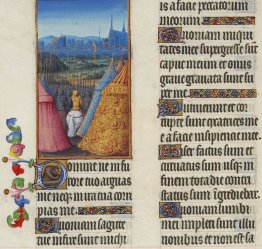 Domine ne in fu
rore tuo arguas
me neq; in ira tua corri
pias me.
Quoniam sagitte
tue infixe sunt michi
is a facie peccatorum
meorum.
Quoniam iniqui
tates mee supergresse sunt
caput meum et onus
graue grauata sunt su
per me.
Putruerunt et cor
rupte sunt cicatrices me
e a facie insipientie mee.
Miser factus sum et
curuatus sum usq; in
finem tota die contri
status ingrediebar.
Quoniam lumbi
mei impleti sunt illusi